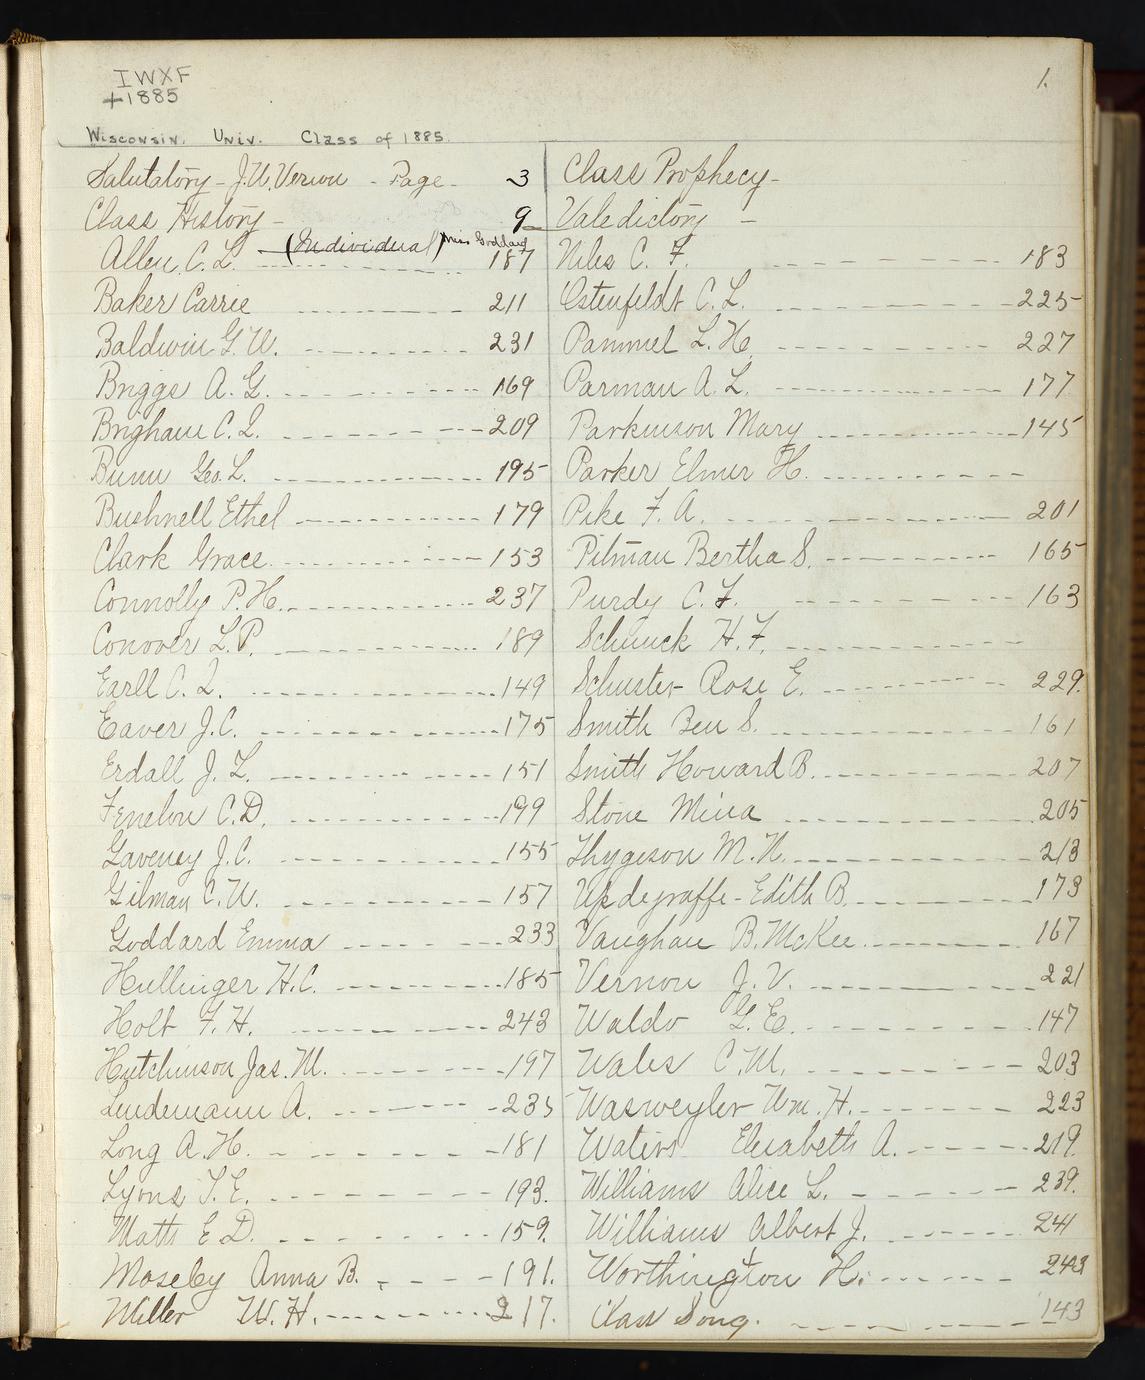 IWXF
+1885
1.
Wisconsin. Univ. Class of 1885.
Salutatory - J. U. Vernon - Page - 3
Class History - 9
(Individual) Miss Goddard
Allen, C. L. 187
Baker Carrie 211
Baldwin G. W. 231
Briggs A. G. 169
Brigham C. I. 209
Bunn Geo. L. 195
Bushnell Ethel 179
Clark Grace 153
Connolly P. H. 237
Conover L. P. 189
Earll C. I. 149
Eaver J. C. 175
Erdall J. L. 151
Fenelon C. D. 199
Gaveney J. C. 155
Gilman C. W. 157
Goddard Emma 233
Hullinger H. C. 185
Holt F. H. 243
Hutchinson Jas. M. 197
Lindemann A. 235
Long A. H. 181
Lyons T. E. 193.
Matts E D. 159.
Moseley Anna B. 191.
Miller W. H. 217.
Class Prophecy -
Valedictory -
Niles C. F. 183
Ostenfeldt C. L. 225
Pammel L. H. 227
Parman A. L. 177
Parkinson Mary 145
Parker Elmer H.
Pike F. A. 201
Pitman Bertha S. 165
Purdy C. F. 163
Schmuck H. F.
Schuster Rose E. 229.
Smith Ben S. 161
Smith Howard B. 207
Stone Mina 205
Thygeson M. N. 213
Updegraffe - Edith B. 173
Vaughan B. McKee 167
Vernon J. V. 221
Waldo G. E. 147
Wales C. M. 203
Wasweyler Wm. H. 223
Waters Elisabeth A. 219.
Williams Alice L. 239.
Williams Albert J. 241
Worthington H. 243
Class Song. 143